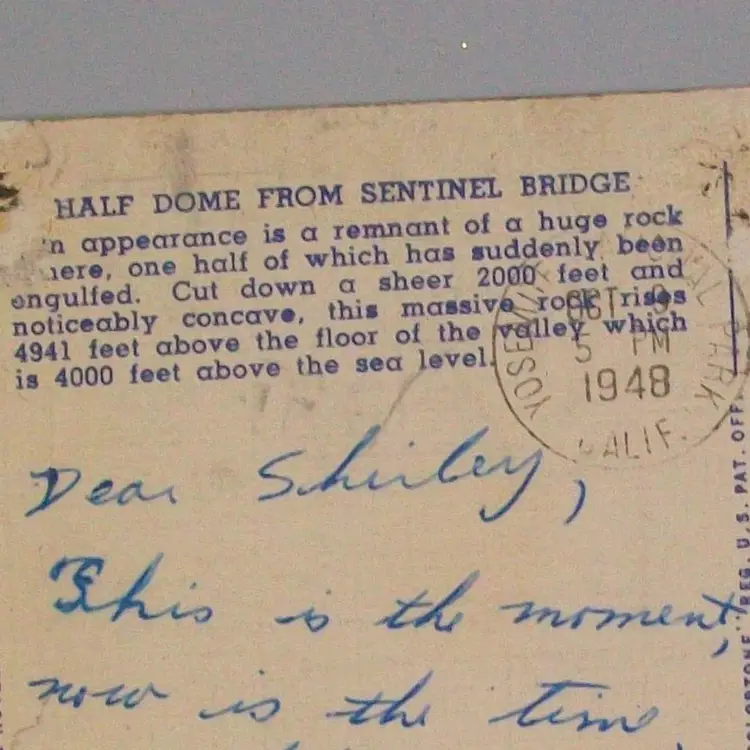 HALF DOME FROM SENTINEL BRIDGE
appearance is a remnant of a huge rock
one half of which has suddenly been
engulfed. Cut down a sheer 2000 feet and
noticeably concave, this massive rock rises
4941 feet above the floor of the valley which
is 4000 feet above the sea level.
YOSEMITE PARK
OCT 9
5 PM
1948
CALIF.
Dear Shirley,
This is the moment,
now is the time
REG. U.S. PAT. OFF.